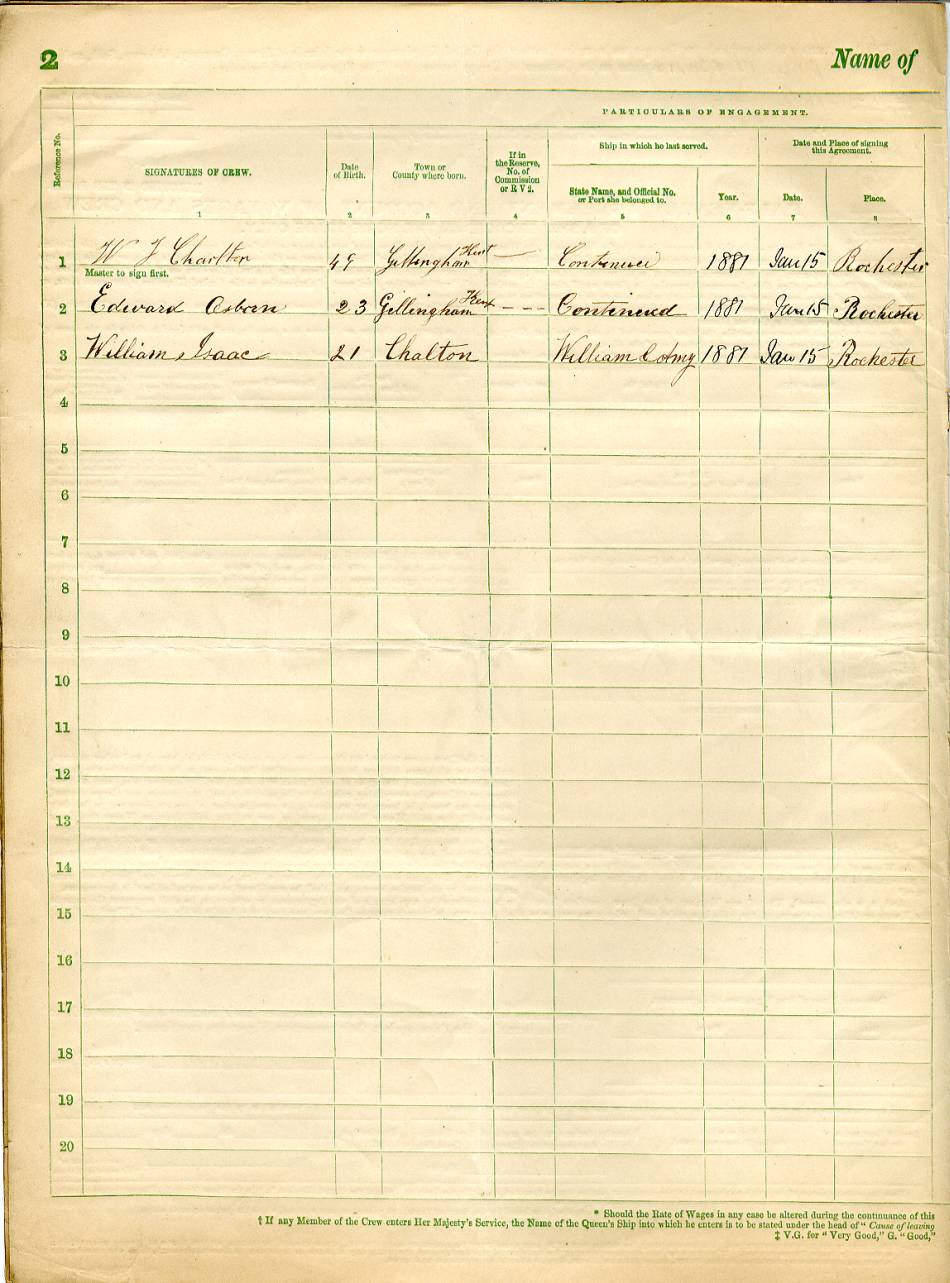 2 Name of
PARTICULARS OF ENGAGEMENT.
Reference No.
SIGNATURES OF CREW.
Date of Birth.
Town or County where born.
If in the Reserve, No. of Commission or R V 2.
Ship in which he last served.
Date and Place of signing this Agreement.
State Name, and Official No. or Port she belonged to.
Year.
Date.
Place.
1 2 3 4 5 6 7 8
1 W J Charlton 49 Gillingham Kent — 1881 Jan 15 Rochester
Master to sign first.
2 Edward Osborn 23 Gillingham Kent - - - Continued 1881 Jan 15 Rochester
3 William Isaac 21 Chalton William & Amy 1881 Jan 15 Rochester
4
5
6
7
8
9
10
11
12
13
14
15
16
17
18
19
20
* Should the Rate of Wages in any case be altered during the continuance of this
† If any Member of the Crew enters Her Majesty's Service, the Name of the Queen's Ship into which he enters is to be stated under the head of " Cause of leaving
‡ V.G. for " Very Good," G. "Good,"